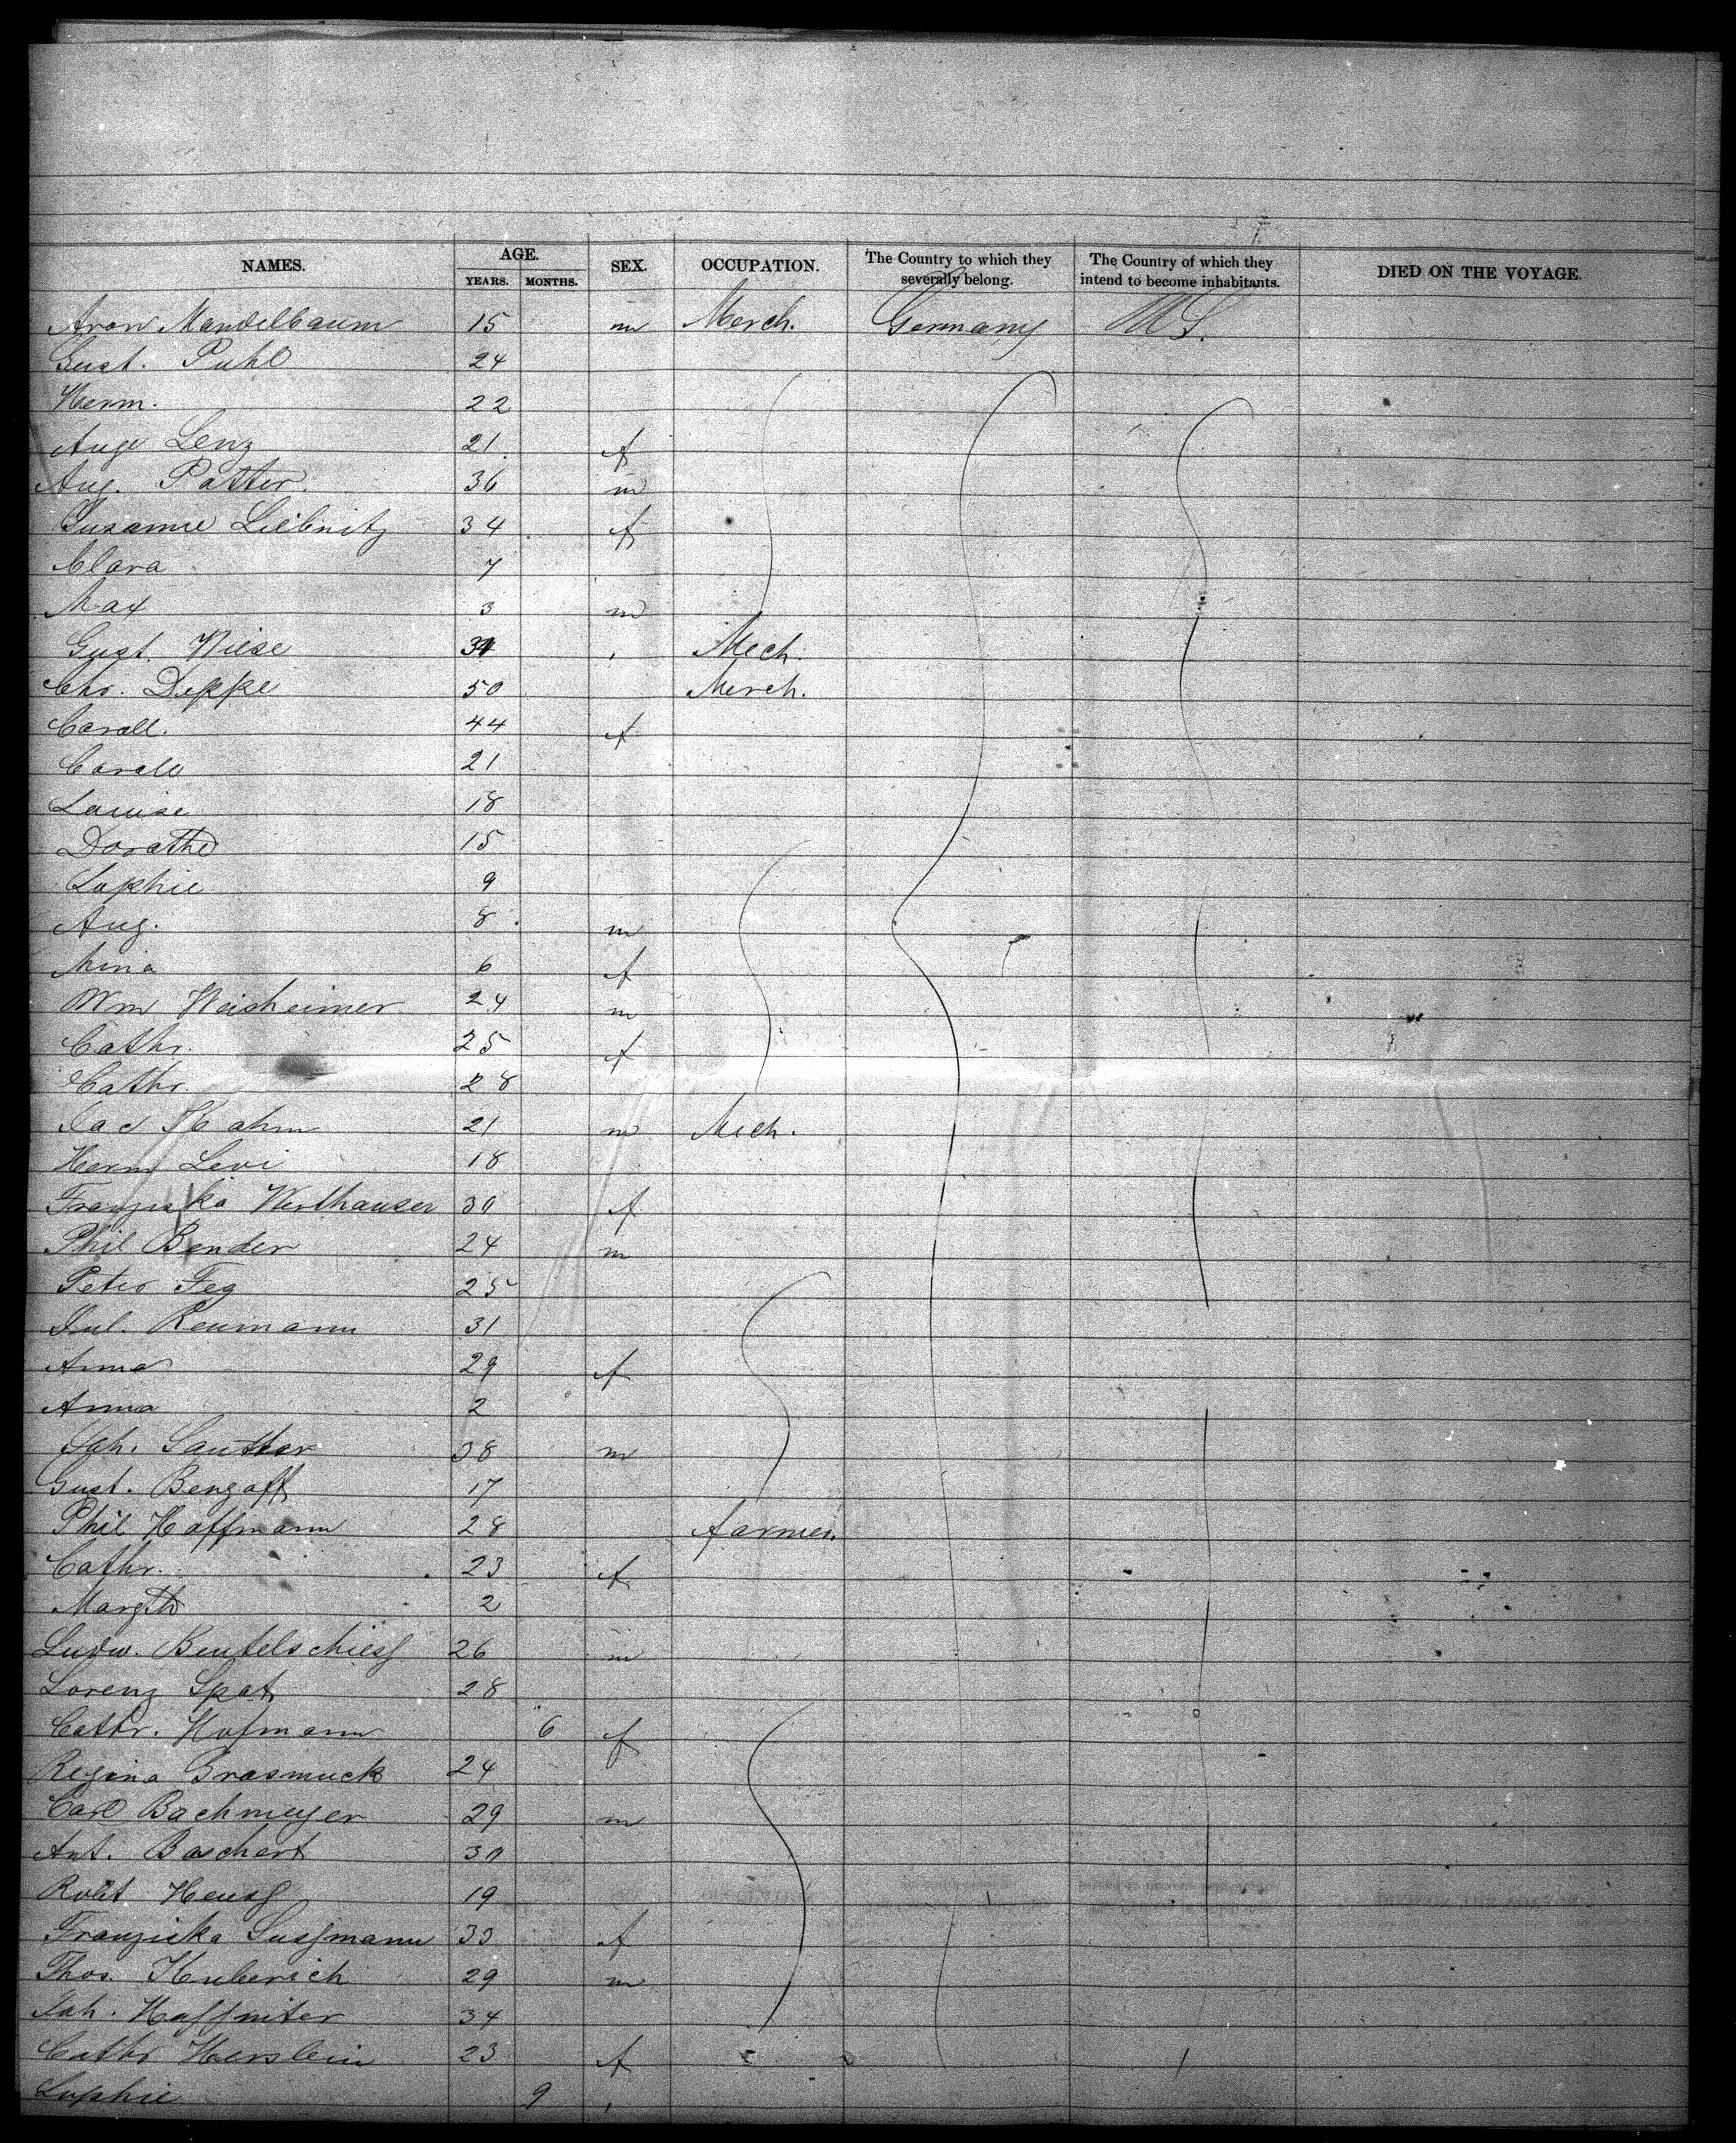 NAMES. AGE. YEARS. MONTHS. SEX. OCCUPATION. The Country to which they severally belong. The Country of which they intend to become inhabitants. DIED ON THE VOYAGE.
Aron Mandelbaum 15 m Merch. Germany U S.
Gust. Puhl 24
Herm. 22
Auge Lenz 21 f
Aug. Patter. 36 m
Susanne Liebnitz 34 f
Clara 7
Max 3 m
Gust. Wiese 31 Mech.
Chr. Deppe 50 Merch.
Caroll. 44 f
Carole 21
Louise 18
Dorathe 15
Sophie 9
Aug. 8 m
Mina 6 f
Wm Weisheimer 24 m
Cathr. 25 f
Cathr. 28
Hahn 21 m Mech.
Herm Levi 18
Franziska Werthauser 30 f
Phil Bender 24 m
Peter Feg 25
Jul. Reumann 31
Anna 29 f
Anna 2
Joh. Sautter 38 m
Gust. Bengaff 17
Phil Hoffmann 28 farmer.
Cathr. 23 f
Margth 2
Ludw. Beutelschiess 26 m
Lorenz Spat 28
Cathr. Hofmann 6 f
Regina Grasmuck 24
Carl Bachmeyer 29 m
Ant. Baschert 30
Robt Heuss 19
Franziska Sussmann 33 f
Thos. Huberich 29 m
Joh. Haffniter 34
Cathr Herslein 23 f
Sophie 9